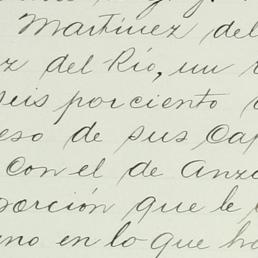 Martínez del
z del Río, un
seis porciento
eso de sus Cap
Con el de Anz
porción que le
eno en lo que ha